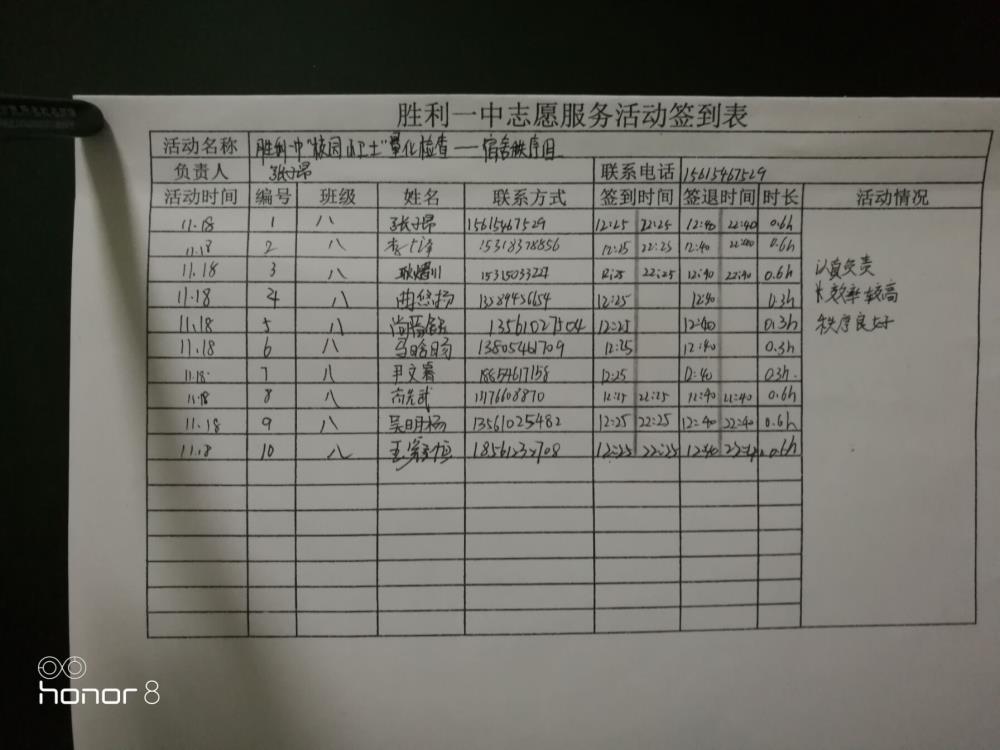 胜利一中志愿服务活动签到表
活动名称 胜利一中"校园小卫士"量化检查——宿舍秩序组
负责人 张子昂 联系电话 15615467529
活动时间 编号 班级 姓名 联系方式 签到时间 签退时间 时长 活动情况
11.18 1 八 张子昂 15615467529 12:25 22:25 12:40 22:40 0.6h
11.18 2 八 15318378856 12:25 22:25 12:40 22:40 0.6h
11.18 3 八 12:25 22:25 12:40 22:40 0.6h
11.18 4 八 曲悠扬 13589436654 12:25 12:40 0.3h
11.18 5 八 13561027504 12:25 12:40 0.3h
11.18 6 八 马晗旸 13805461709 12:25 12:40 0.3h
11.18 7 八 尹文睿 18654617158 12:25 12:40 0.3h
11.18 8 八 12:25 22:25 12:40 22:40 0.6h
11.18 9 八 吴明杨 13561025482 12:25 22:25 12:40 22:40 0.6h
11.8 10 八 18561232708 12:25 22:25 12:40 22:40 0.6h
认真负责
效率较高
秩序良好
honor 8